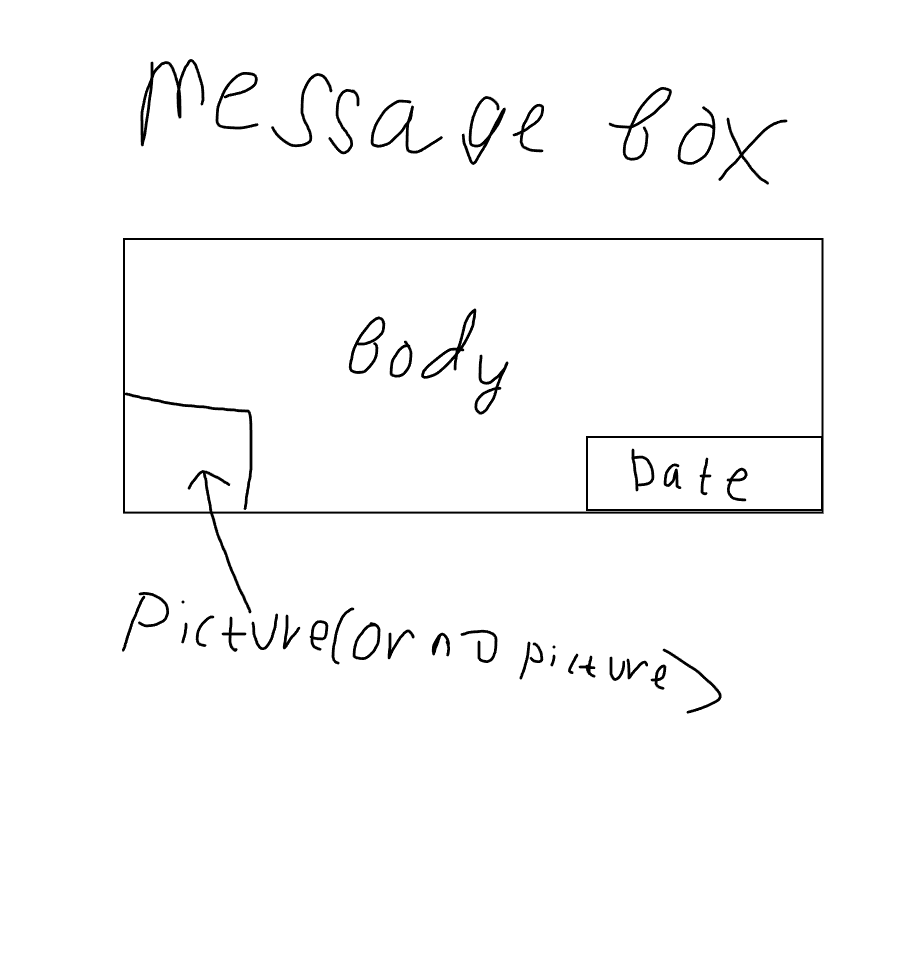 message box
Body
Date
Picture(or no picture)